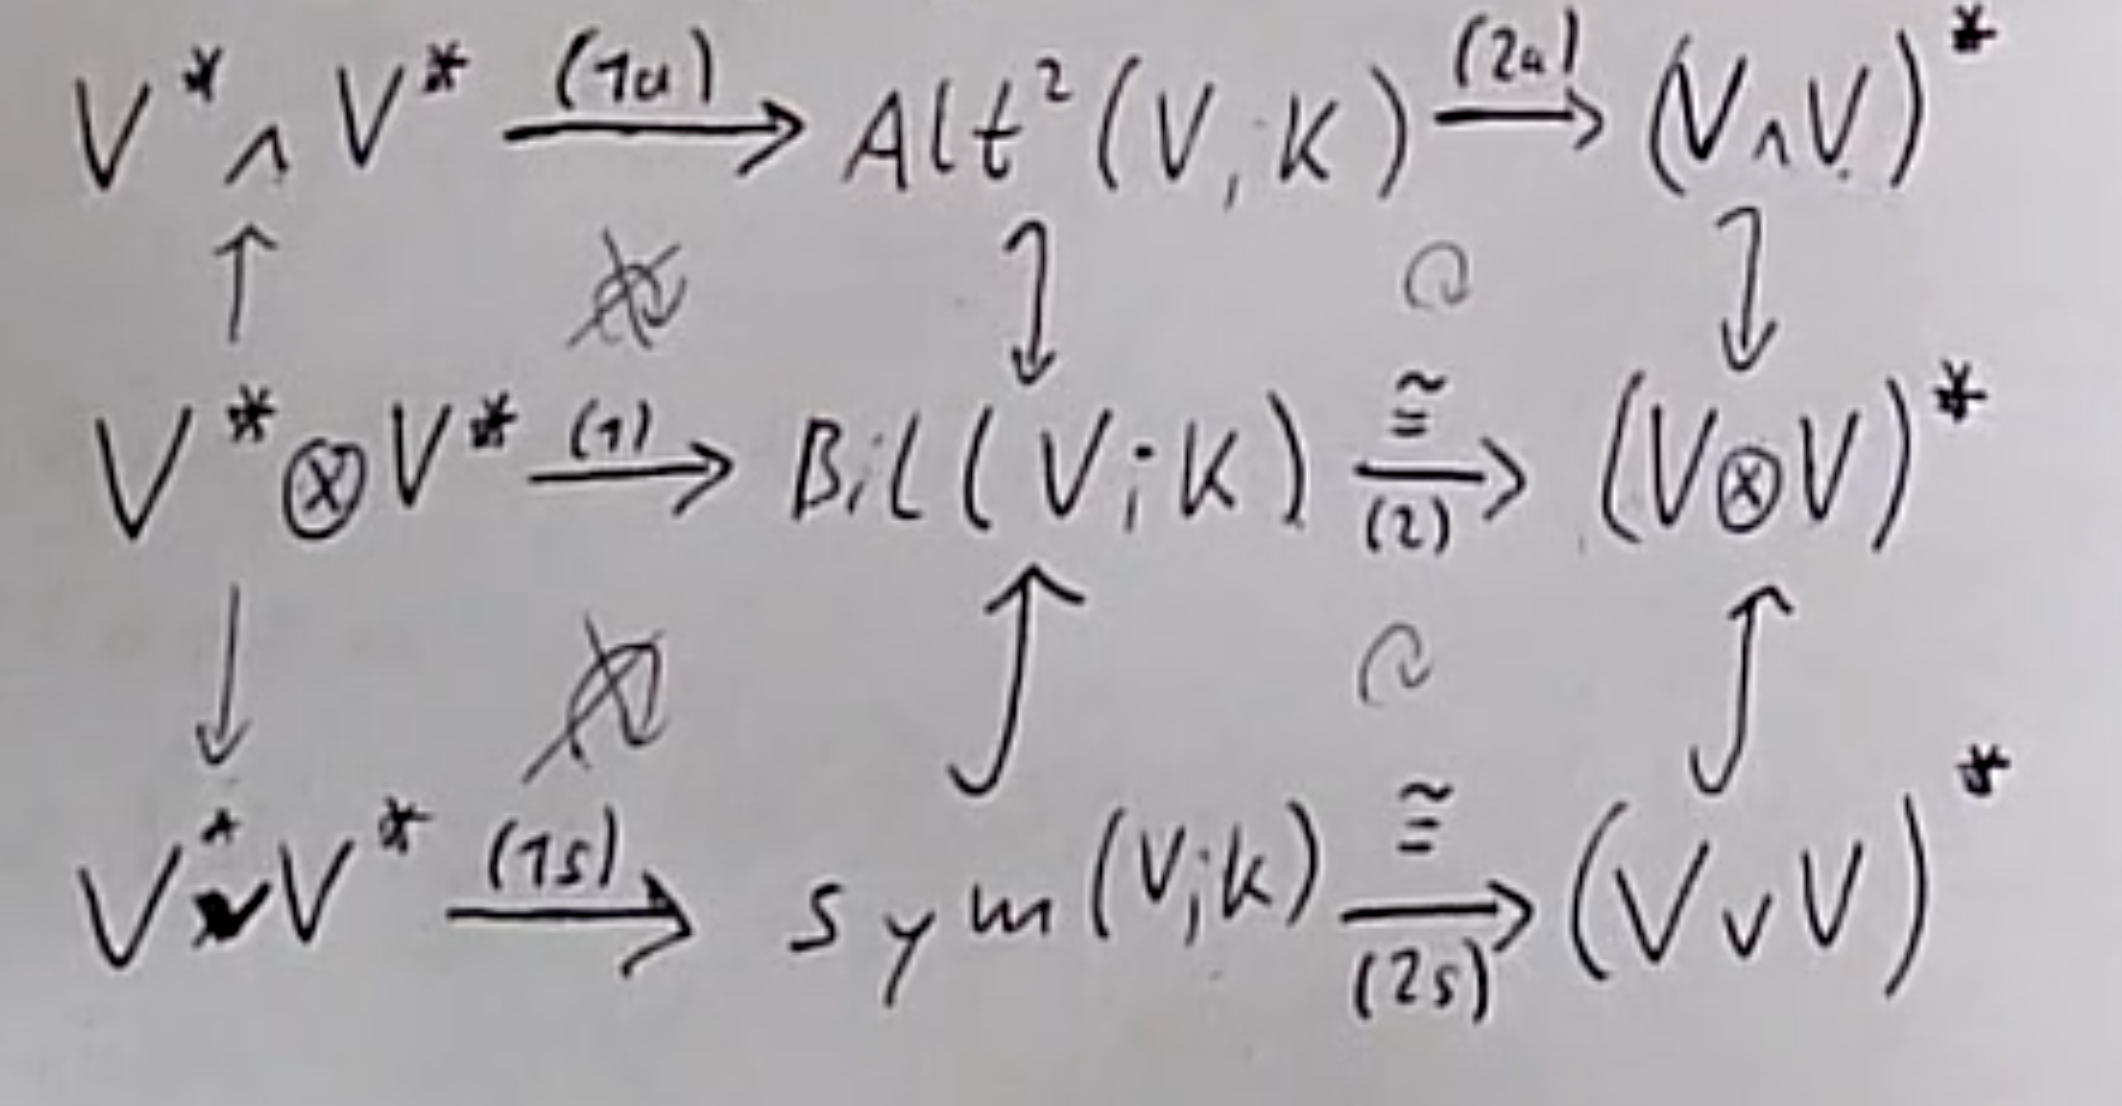 V* ∧ V* (1a) → Alt²(V;K) (2a) → (V∧V)*
↑ ↓ ↓
V* ⊗ V* (1) → Bil(V;K) ≅ → (2) (V⊗V)*
↓ ↑ ↑
V* ∨ V* (1s) → Sym(V;K) ≅ → (2s) (V∨V)*